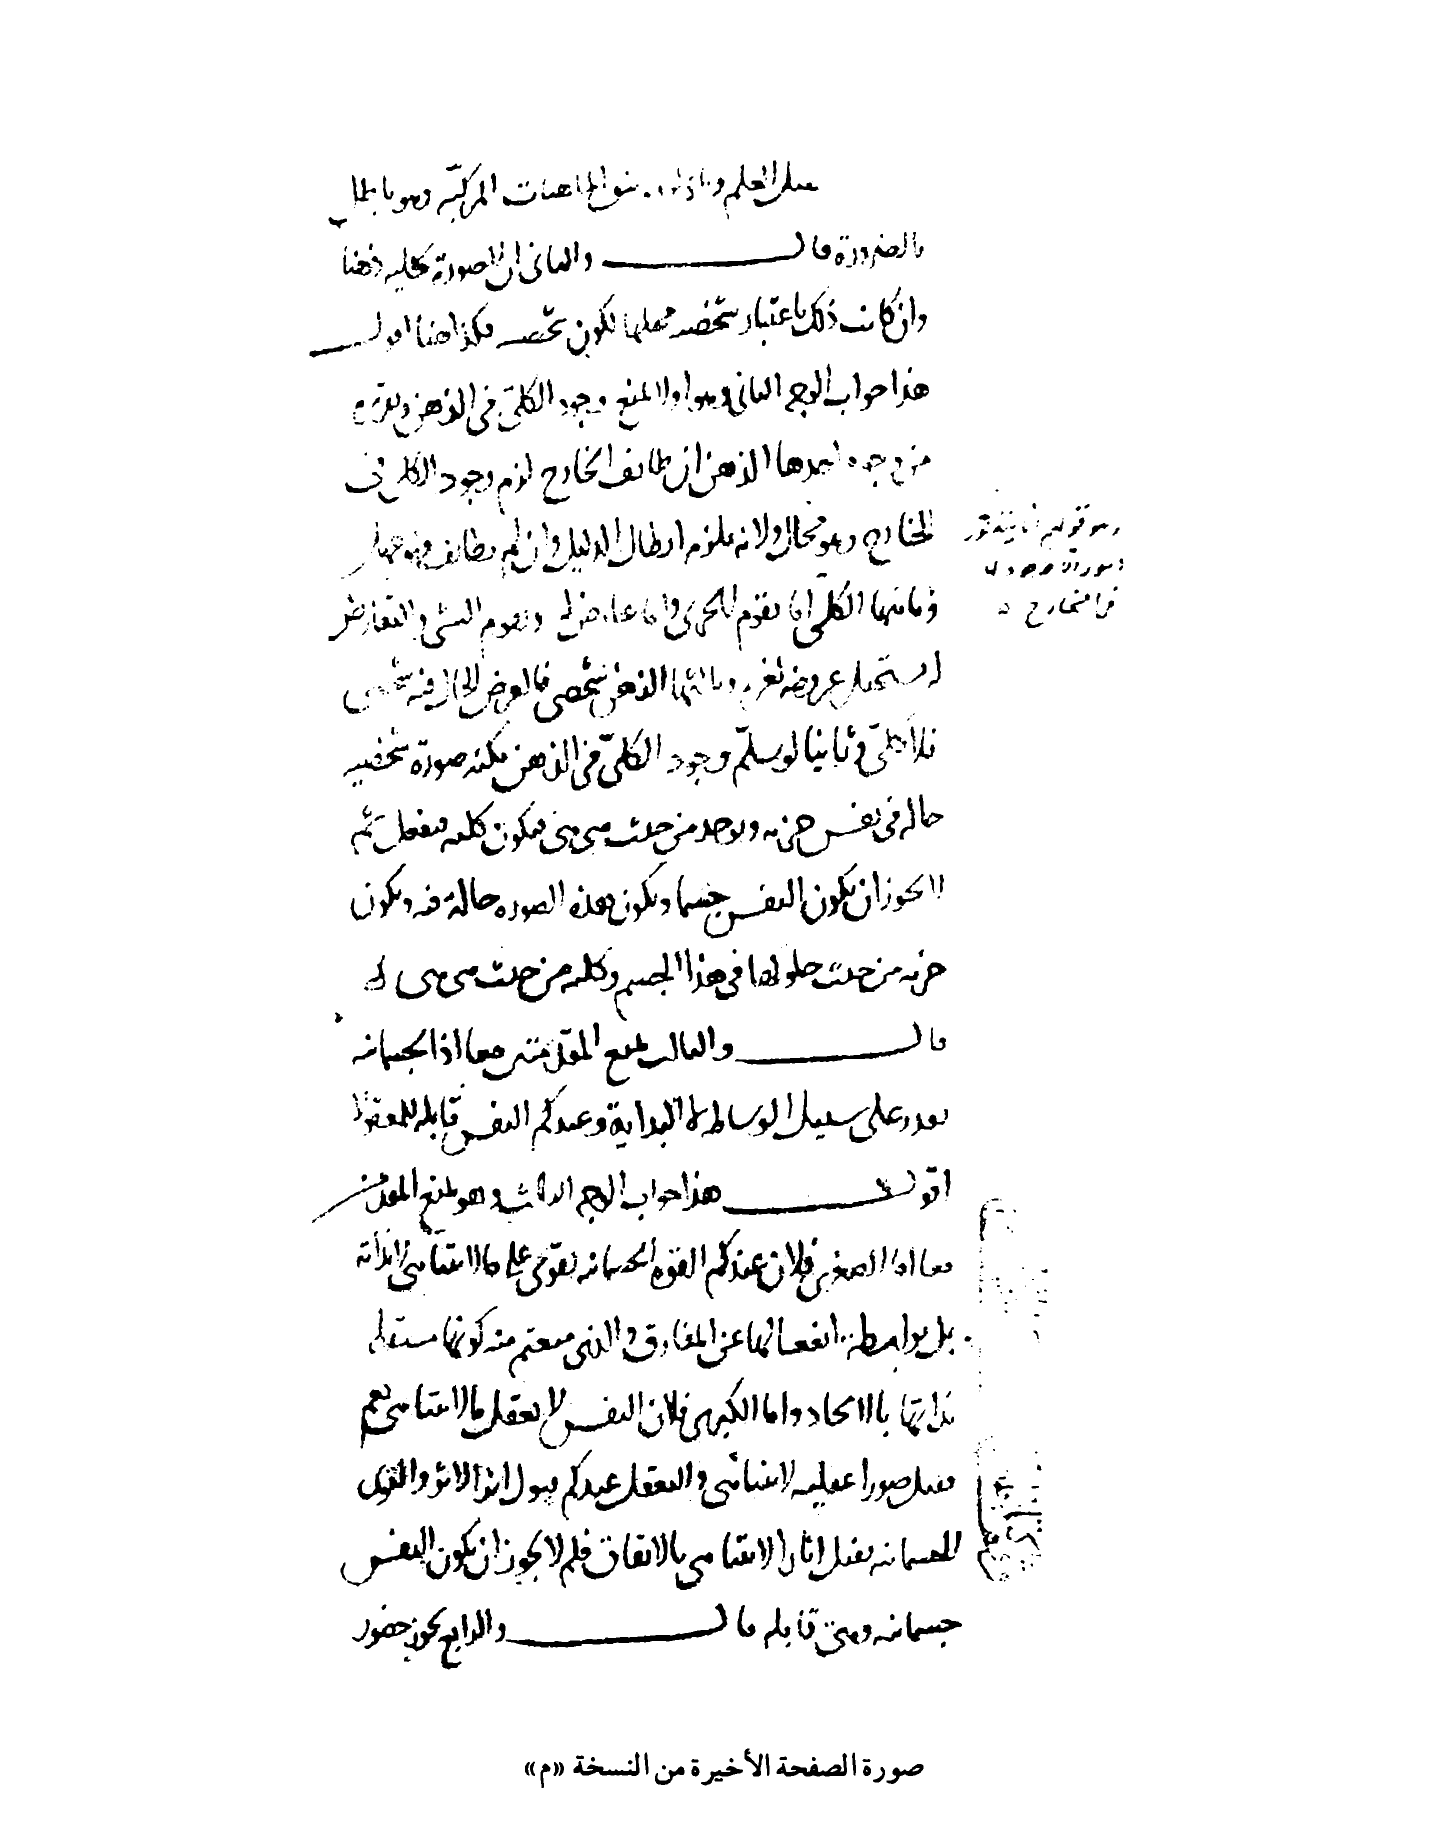 العلم المركبة وهو باطل
بالضرورة قال والثانى ان الصورة كلية ذهنا
وان كانت ذلك باعتبار شخصية محلها تكون شخصية فكذا هنا اقول
هذا جواب الوجه الثانى وهو اولا لمنع وجود الكلى فى الذهن وتقريره
من وجوه احدها الذهن ان طابق الخارج لزم وجود الكلى فى
الخارج وهو محال ولانه يلزم ابطال الدليل وان لم يطابق فهو جهل
وثانيها الكلى اما مقوم للجزى واما عارض له ومقوم الشى والعارض
له يستحيل عروضه لغيره وثالثها الذهن شخصى فالعرض الحال فيه شخصى
فلا كلى وثانيا لو سلم وجود الكلى فى الذهن لكنه صورة شخصية
حالة فى نفس جزئية ويوجد من حيث هى هى فيكون كلية فنقول لم
لا يجوز ان يكون النفس جسما ويكون هذه الصورة حالة فيه ويكون
جزئية من حيث حلولها فى هذا الجسم وكلية من حيث هى هى
قال والثالث لمنع المقدمتين معا اذ الجسمانية
تقدر على سبيل الوساطة لا البداية وعندكم النفس قابلة للمعقولا
اقول هذا جواب الوجه الثالث وهو لمنع المقدمتين
معا اما الصغرى فلان عندكم القوة الجسمانية تقوى على ما لا يتناهى لا بذاته
بل بواسطة انفعالها عن المفارق والذى منعتم منه كونها مستقلة
بذاتها بالايجاد واما الكبرى فلان النفس لا تعقل ما لا يتناهى نعم
تقبل صورا عقلية لا يتناهى والتعقل عندكم قبول اثر الاثر والقوى
الجسمانية تقبل اثارا لا يتناهى بالاتفاق فلم لا يجوز ان يكون النفس
جسمانية وهى قابلة قال والرابع يجوز حضور
وهو قولهم
فى الخارج
صورة الصفحة الأخيرة من النسخة «م»